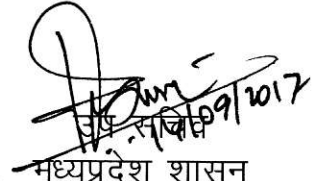 14/09/2017
उप सचिव
मध्यप्रदेश शासन